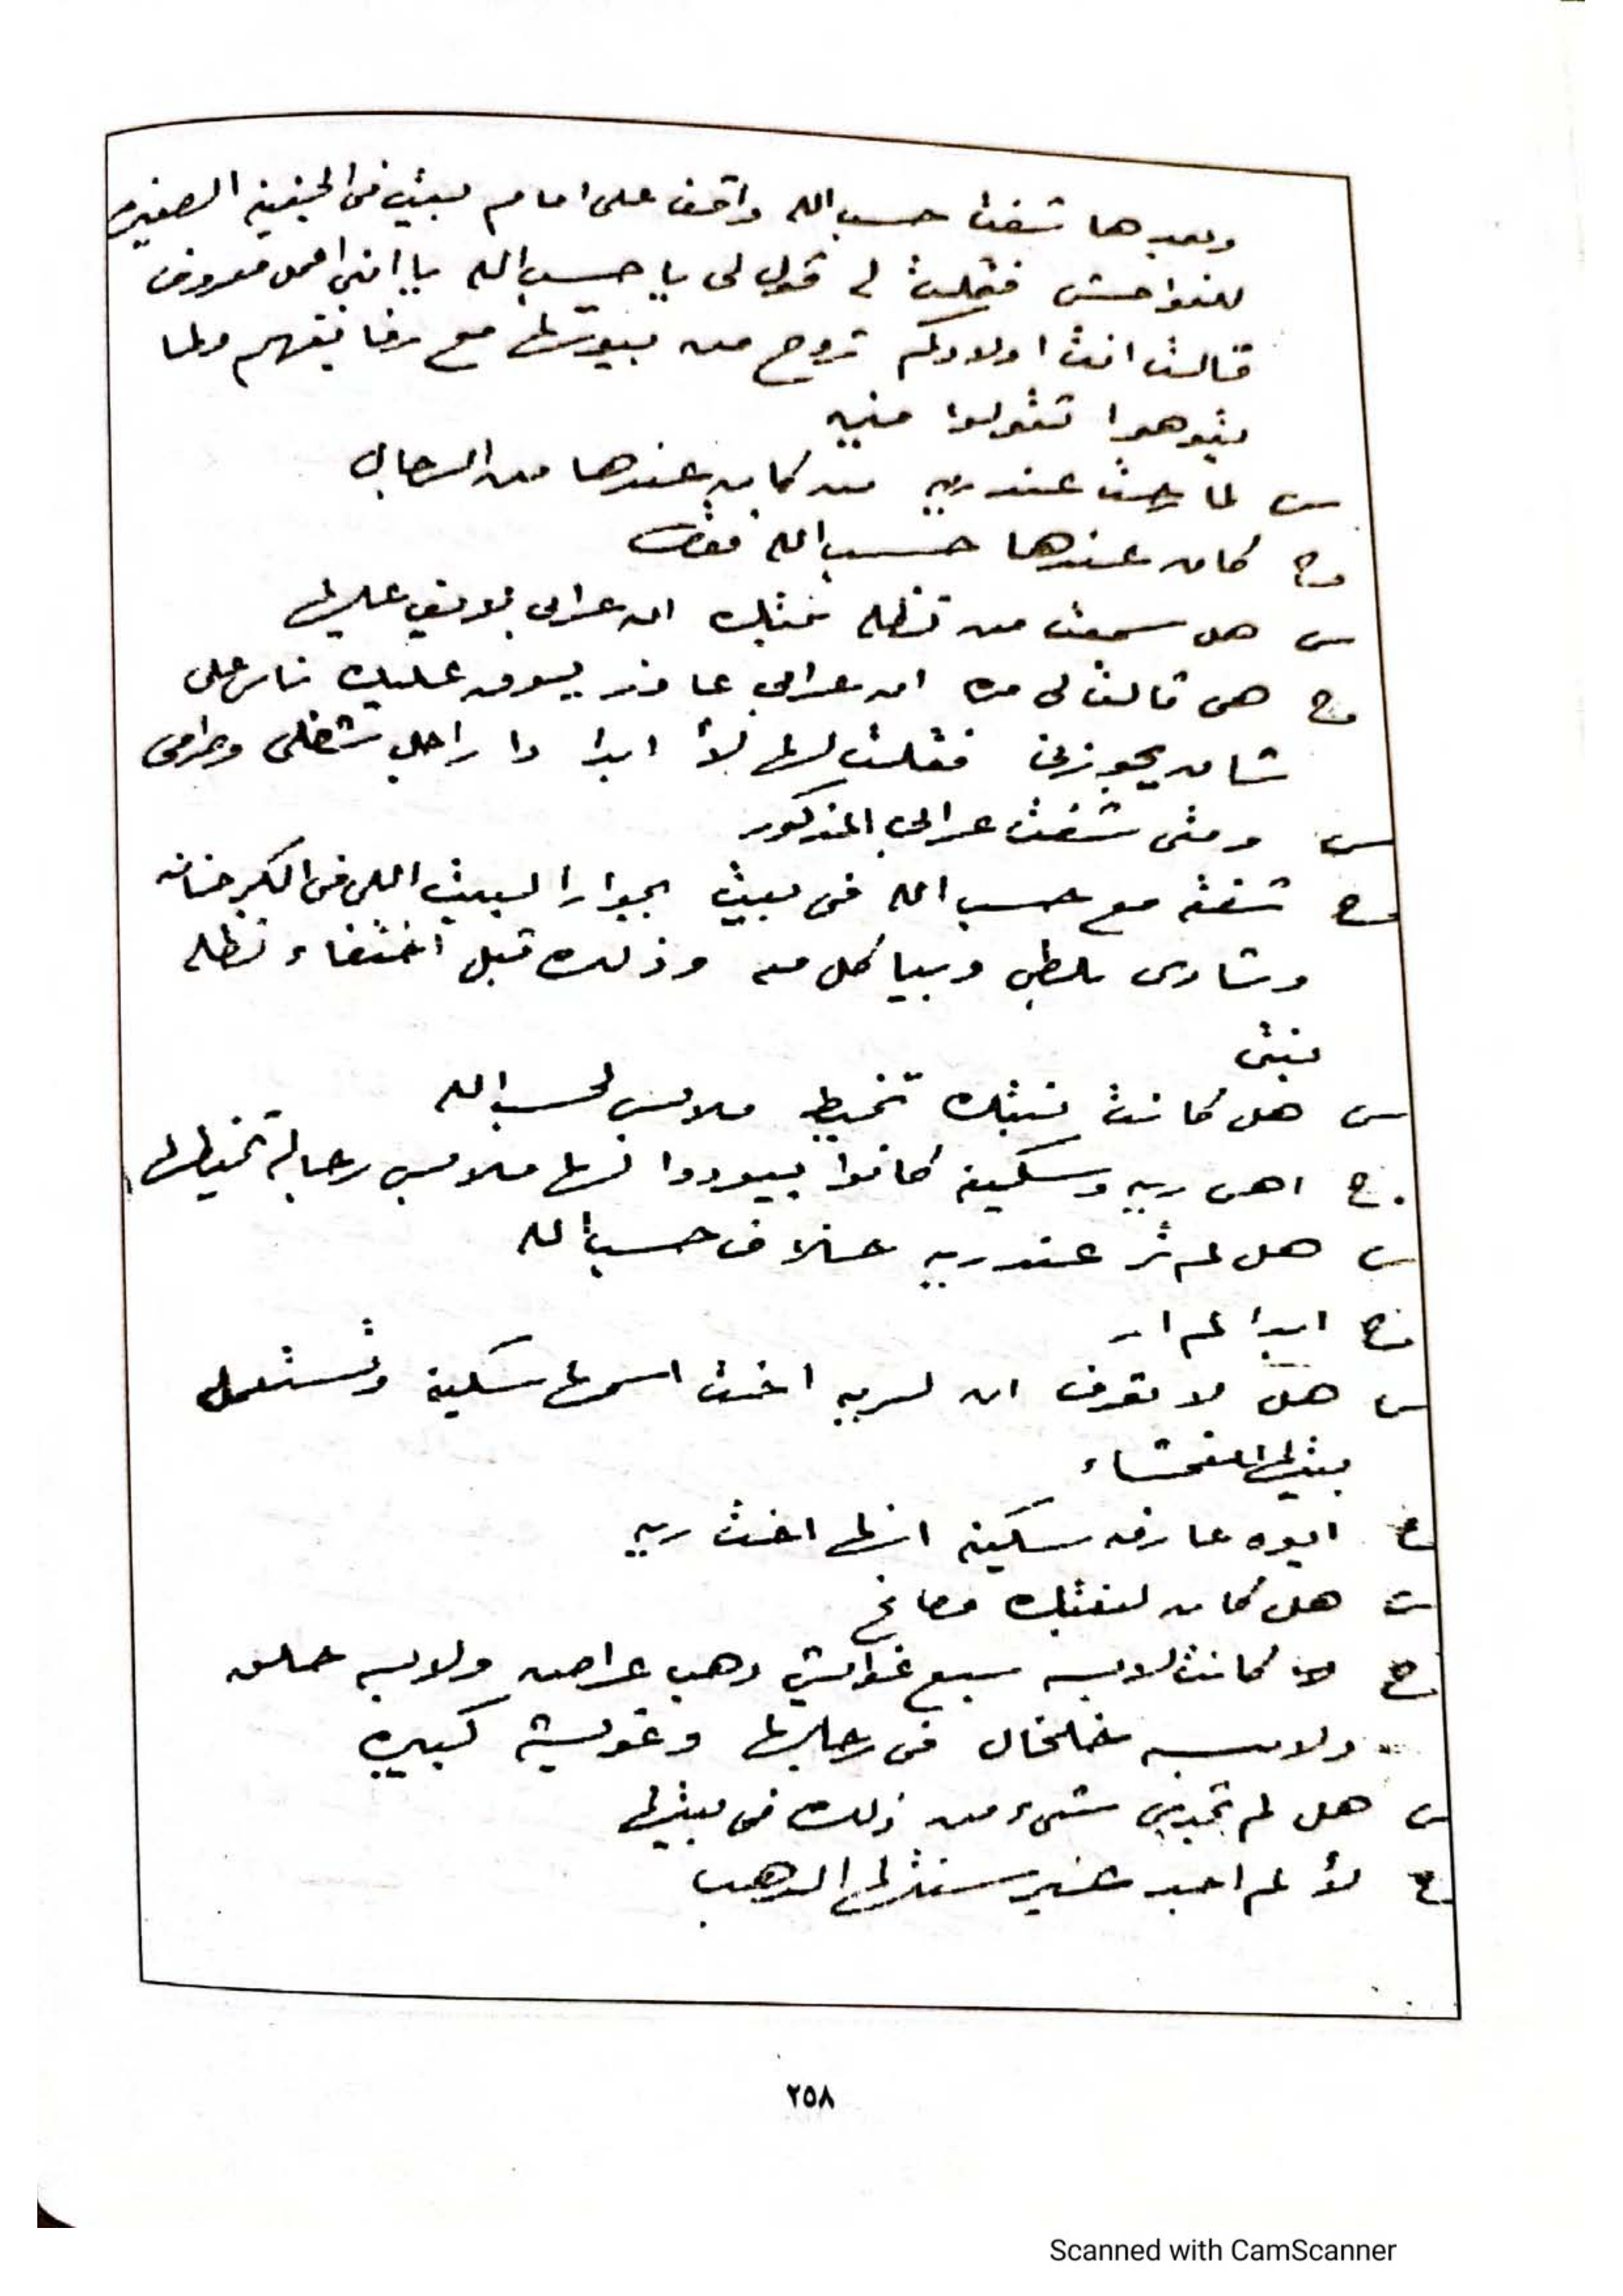 وبعدها شفت حسب الله واقف على امام بيت فى الجنينة الصغيرة
للفواحش فقلت له قول لى يا حسب الله يا ابنى المحل معروف
قالت انت اولادكم تروح من بيوتها مع رفايقهم ولما
يتوهوا تقولوا منين
س لما رحت عند ريه من كان عندها من الرجال
ج كان عندها حسب الله فقط
س هل سمعت من نظله بنتك ان عرابى بلايف عليها
ج هى قالت لى مره ان عرابى عاوز يسوق عليك ناس على
شان يجوزنى فقلت لها لأ ابدا دا راجل شضلى وحرامى
س ومتى شفت عرابى المذكور
ج شفته مع حسب الله فى بيت بجوار البيت اللى فى الكرخانه
وشارى بلطى وبياكل منه وذلك قبل اختفاء نظله
بنتى
س هل كانت بنتك تخيط ملابس لحسب الله
ج اهى ريه وسكينه كانوا بيودوا لها ملابس رجاله تخيطها
س هل لم تر عند ريه خلاف حسب الله
ج ابدا لم ار
س هل لا تعرف ان لريه اخت اسمها سكينة وتستعمل
بيتها للفحشاء
ج ايوه عارفه سكينه انها اخت ريه
س هل كان لبنتك مصاغ
ج كانت لابسه سبع غوايش دهب عراض ولابسه حلق
ولابسه خلخال فى رجليها وغويشة كبيره
س هل لم تجدى شىء من ذلك فى بيتها
ج لأ لم اجد غير سنتها الدهب
٢٥٨
Scanned with CamScanner